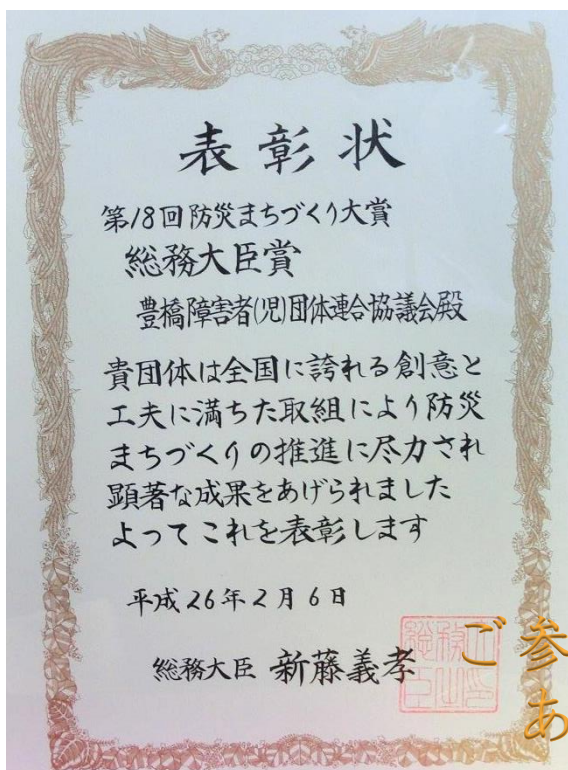 表彰状
第18回防災まちづくり大賞
総務大臣賞
豊橋障害者(児)団体連合協議会殿
貴団体は全国に誇れる創意と
工夫に満ちた取組により防災
まちづくりの推進に尽力され
顕著な成果をあげられました
よってこれを表彰します
平成26年2月6日
総務大臣 新藤義孝
ご参
あ